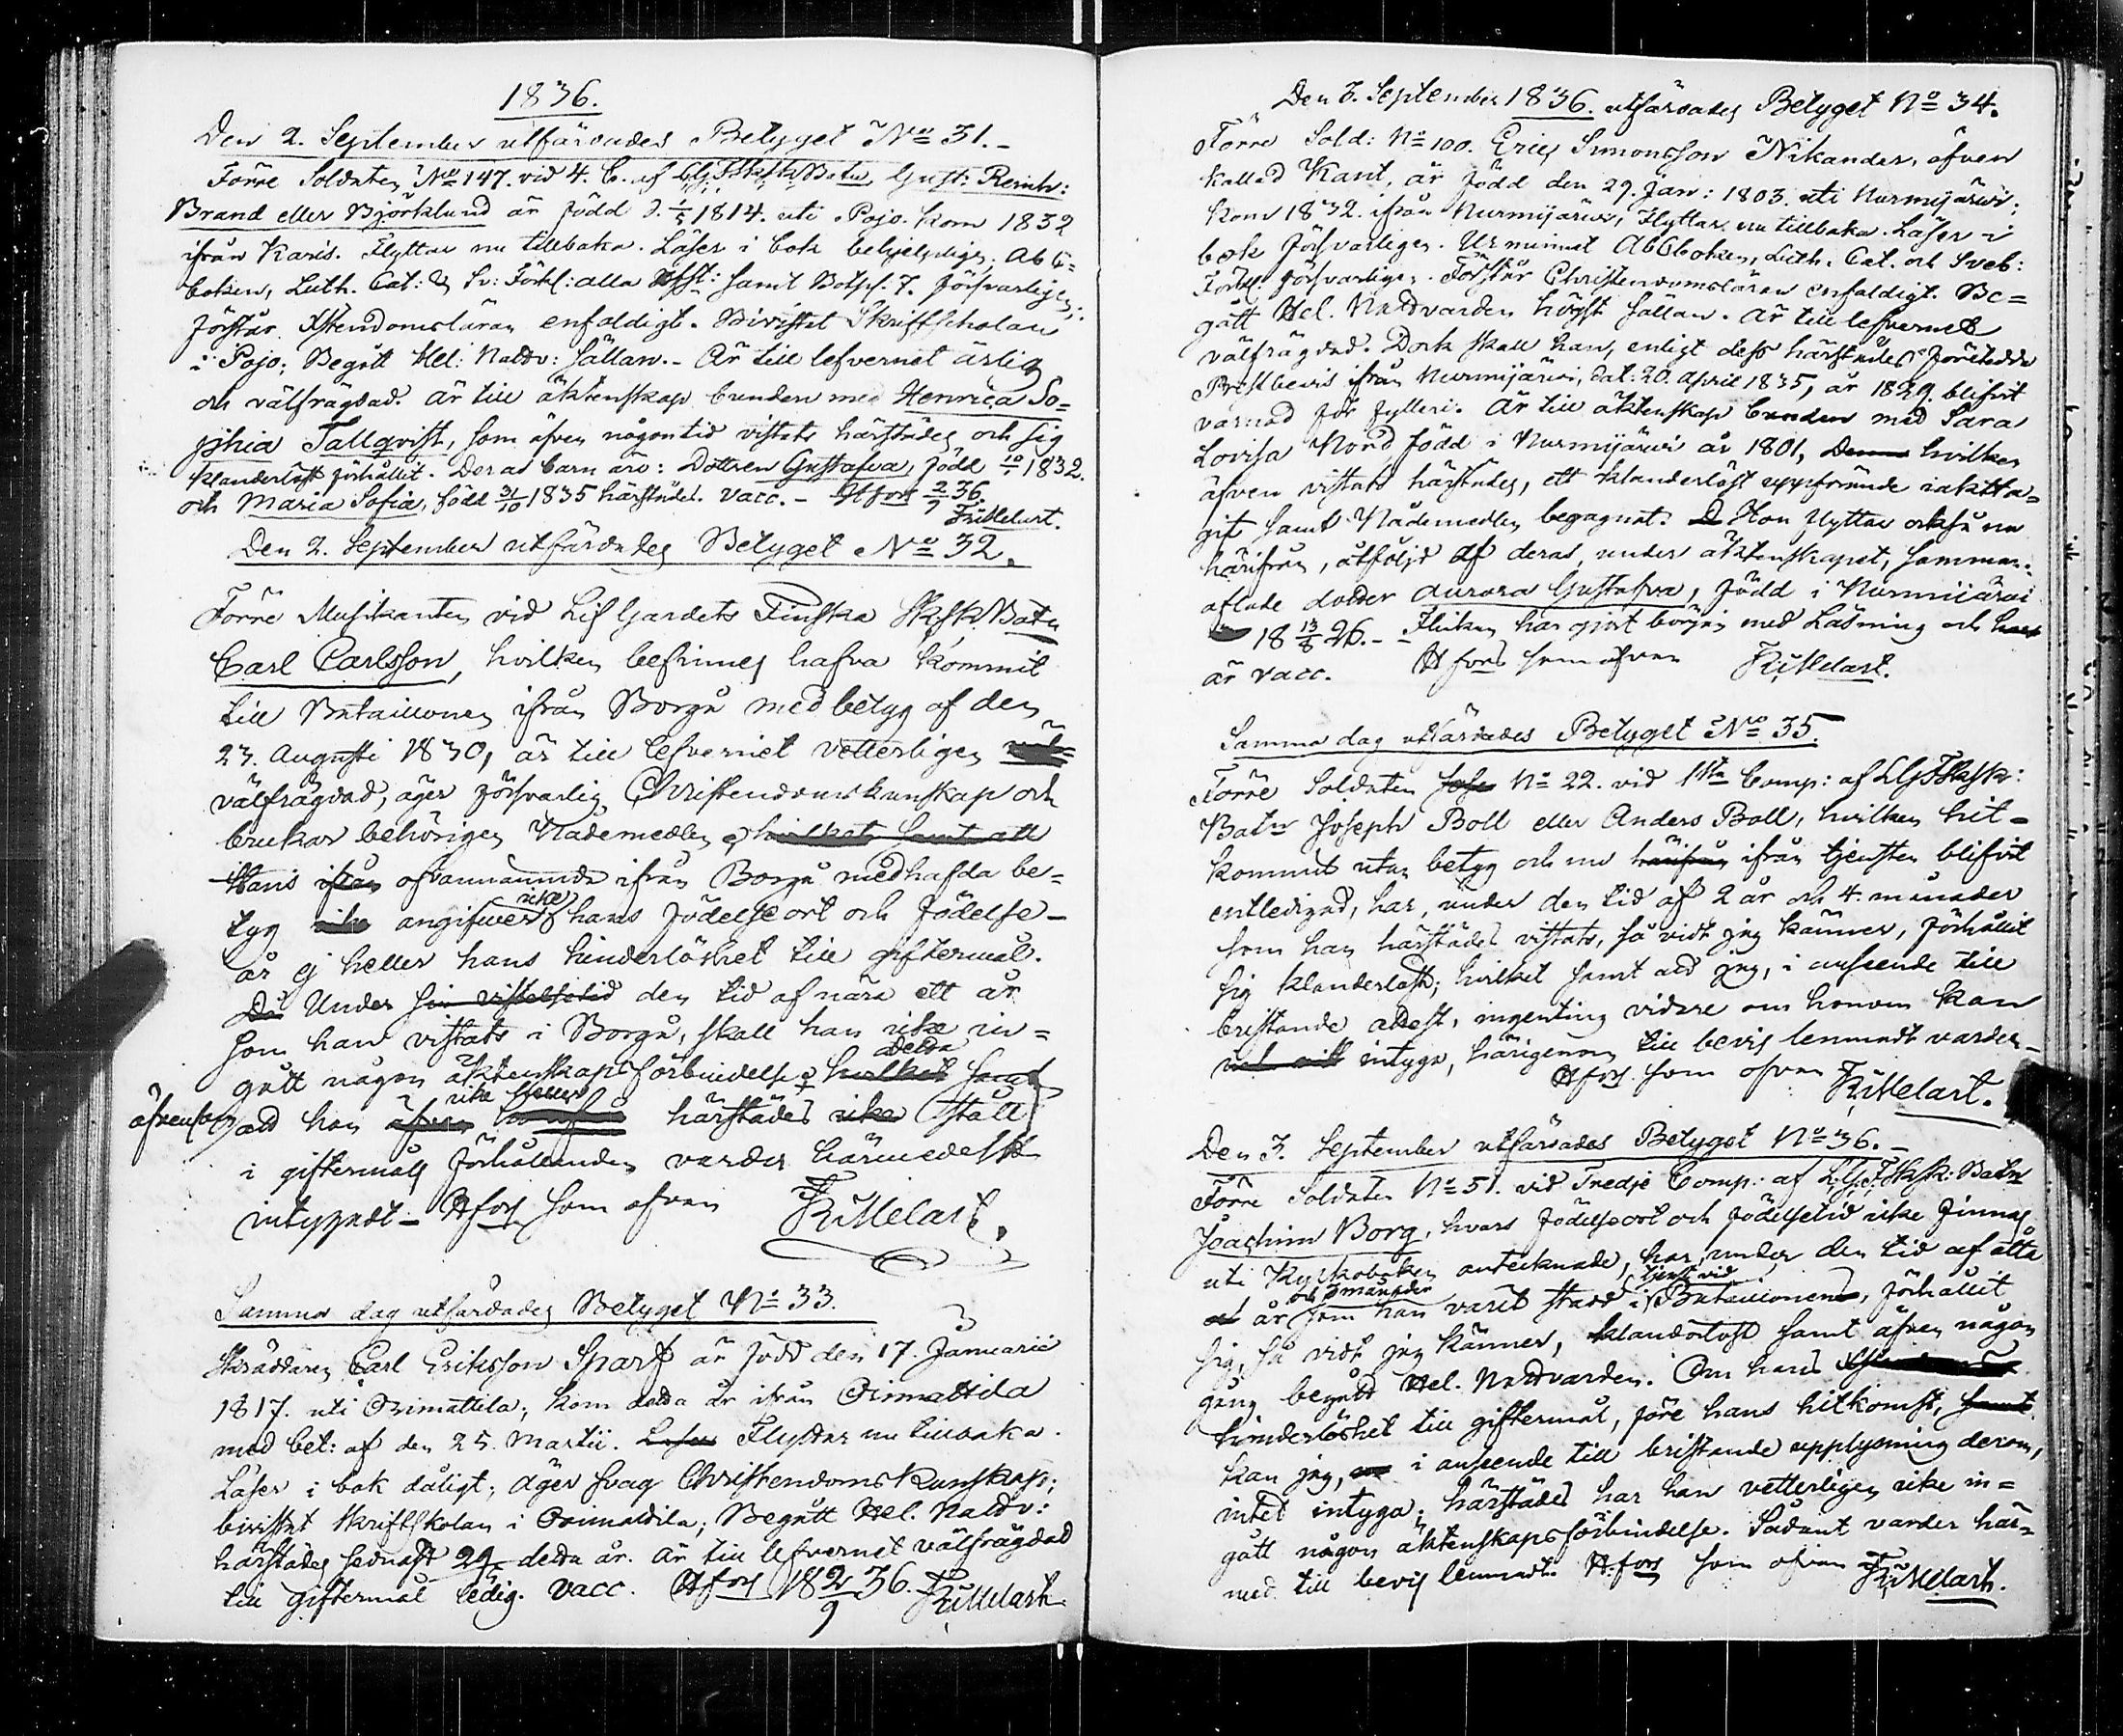 1836.
Den 2. September utfärdades Betyget No 31. -
Förre Soldaten No 147. vid 4. C. af LGFSksk Batn Gust: Reinh:
Brand eller Björklund är född d. 1/5 1814. uti Pojo. kom 1832
ifrån Karis. Flyttar nu tillbaka. Läser i bok behjelpligen. AbC=
boken, Luth. Cat: & Sv: Förkl: alla samt Botps. 7. försvarligen;
förstår Xstendomsläran enfaldigt. Bivistat Skriftscholan
i Pojo; Begått Hel: Nattv: sällan. - Är till lefvernet ärlig
och välfrägdad. är till äktenskap bunden med Henrica So=
phia Tallqvist, som äfven någon tid vistats härstädes och sig
klanderlöst förhållit. Deras barn äro: Dottren Gustafva, född 1832.
och Maria Sofia, född 31/10 1835 härstädes. vacc. - Hfors 2/9 36.
Fr: Melart.
Den 2. September utfärdades Betyget No 32.
Förre Musikanten vid Lif Gardets Finska SkSk. Batn
Carl Carlsson, hvilken befinnes hafva kommit
till Bataillonen ifrån Borgå med betyg af den
23. Augusti 1830, är till lefvernet vetterligen
välfrägdad, äger försvarlig Christendomskunskap och
brukar behörigen Nådemedlen, hvilket samt att
Hans ifrån ofvannämnde ifrån Borgå medhafda be=
tyg icke angifver icke hans födelseort och födelse-
år ej heller hans hinderlöshet till giftermål.
Då Under sin vistelsetid den tid af nära ett år
som han vistats i Borgå, skall han icke in=
gått någon äktenskapsförbindelse, hvilket Detta samt
äfvensom att han äfven icke heller härstädes icke stått
i giftermåls förhållanden varder härmedelst
intygadt - Hfors som ofvan Fr: Melart.
Samma dag utfärdades Betyget No 33.
Skräddaren Carl Eriksson Sparf är född den 17. Januarii
1817. uti Orimattila; kom detta år ifrån Orimattila
med bet: af den 25. Martii. Läser Flyttar nu tillbaka.
Läser i bok dåligt; äger svag Christendoms Kunskap;
bivistat Skriftskolan i Orimattila; Begått Hel. Nattv:
härstädes sednast 29/5 detta år. är till lefvernet välfrägdad
till giftermål ledig. vacc. Hfors 18 2/9 36. Fr: Melart.
Den 3. September 1836. utfärdades Betyget No 34.
Förre Sold: No 100. Eric Simonsson Nikander, äfven
kallad Kant, är född den 29. Jan: 1803. uti Nurmijärvi;
kom 1832. ifrån Nurmijärvi, Flyttar nu tillbaka. Läser i
bok försvarligen. Ur minnet AbCboken, Luth. Cat. och Sveb:
Förkl. försvarligen. Förstår Christendomsläran enfaldigt. Be=
gått Hel. Nattvarden högst sällan. är till lefvernet
välfrägdad. Dock skall han, enligt dess härstädes företedda
Prestbevis ifrån Nurmijärvi, dat: 20. April 1835, år 1829. blifvit
varnad för fylleri. Är till äktenskap bunden med Sara
Lovisa Nord född i Nurmijärvi år 1801, Denna hvilken
äfven vistats härstädes, ett klanderlöst uppförande iaktta=
git samt Nådemedlen begagnat. Hon flyttar också nu
härifrån, åtföljd af deras, under äktenskapet, samman=
aflade dotter Aurora Gustafva, född i Nurmijärvi
18 13/8 26. - Flickan har gjort början med Läsning och har
är vacc. Hfors som ofvan Fr: Melart.
Samma dag utfärdades Betyget No 35.
Förre Soldaten Jose No 22. vid 1sta Comp: af LGFSksk:
Batn Joseph Boll eller Anders Boll, hvilken hit-
kommit utan betyg och nu härifrån ifrån tjensten blifvit
entledigad, har, under den tid af 2 år och 4. månader
som han härstädes vistats, så vidt jag känner, förhållit
sig klanderlöst; hvilket samt att jag, i anseende till
bristande attest, ingenting vidare om honom kan
intyga, härigenom till bevis lemnadt varder -
Hfors. som ofvan Fr: Melart.
Den 3. September utfärdades Betyget No 36. -
Förre Soldaten No 51. vid Tredje Comp: af L.G.F.Sksk: Batn
Joachim Borg, hvars födelseort och födelsetid icke finnas
uti Kyrkoboken antecknade, har, under den tid af åtta
år och 3 månader som han varit stadd i tjenst vid Bataillonen, förhållit
sig, så vidt jag känner, klanderlöst samt äfven någon
gång begått Hel. Nattvarden. Om hans
hinderlöshet till giftermål, före hans hitkomst, samt
kan jag, i anseende till bristande upplysning derom,
intet intyga; härstädes har han vetterligen icke in=
gått någon äktenskapsförbindelse. Sådant varder här=
med till bevis lemnadt. H.fors som ofvan Fr: Melart.